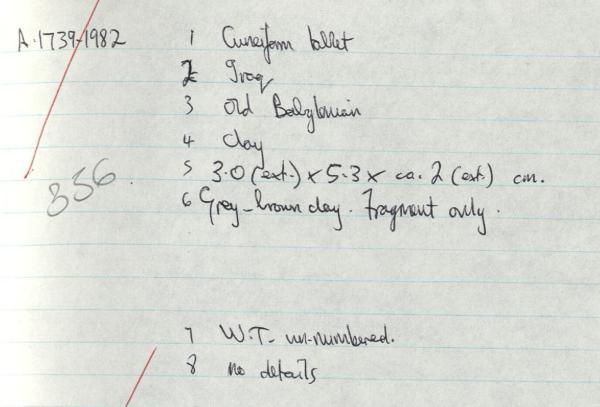 A.1739-1982
1 Cuneiform tablet
2 Iraq
3 Old Babylonian
4 Clay
5 3.0 (ext.) x 5.3 x ca. 2 (ext.) cm.
356
6 Grey-brown clay. Fragment only.
7 W.T- un-numbered.
8 no details